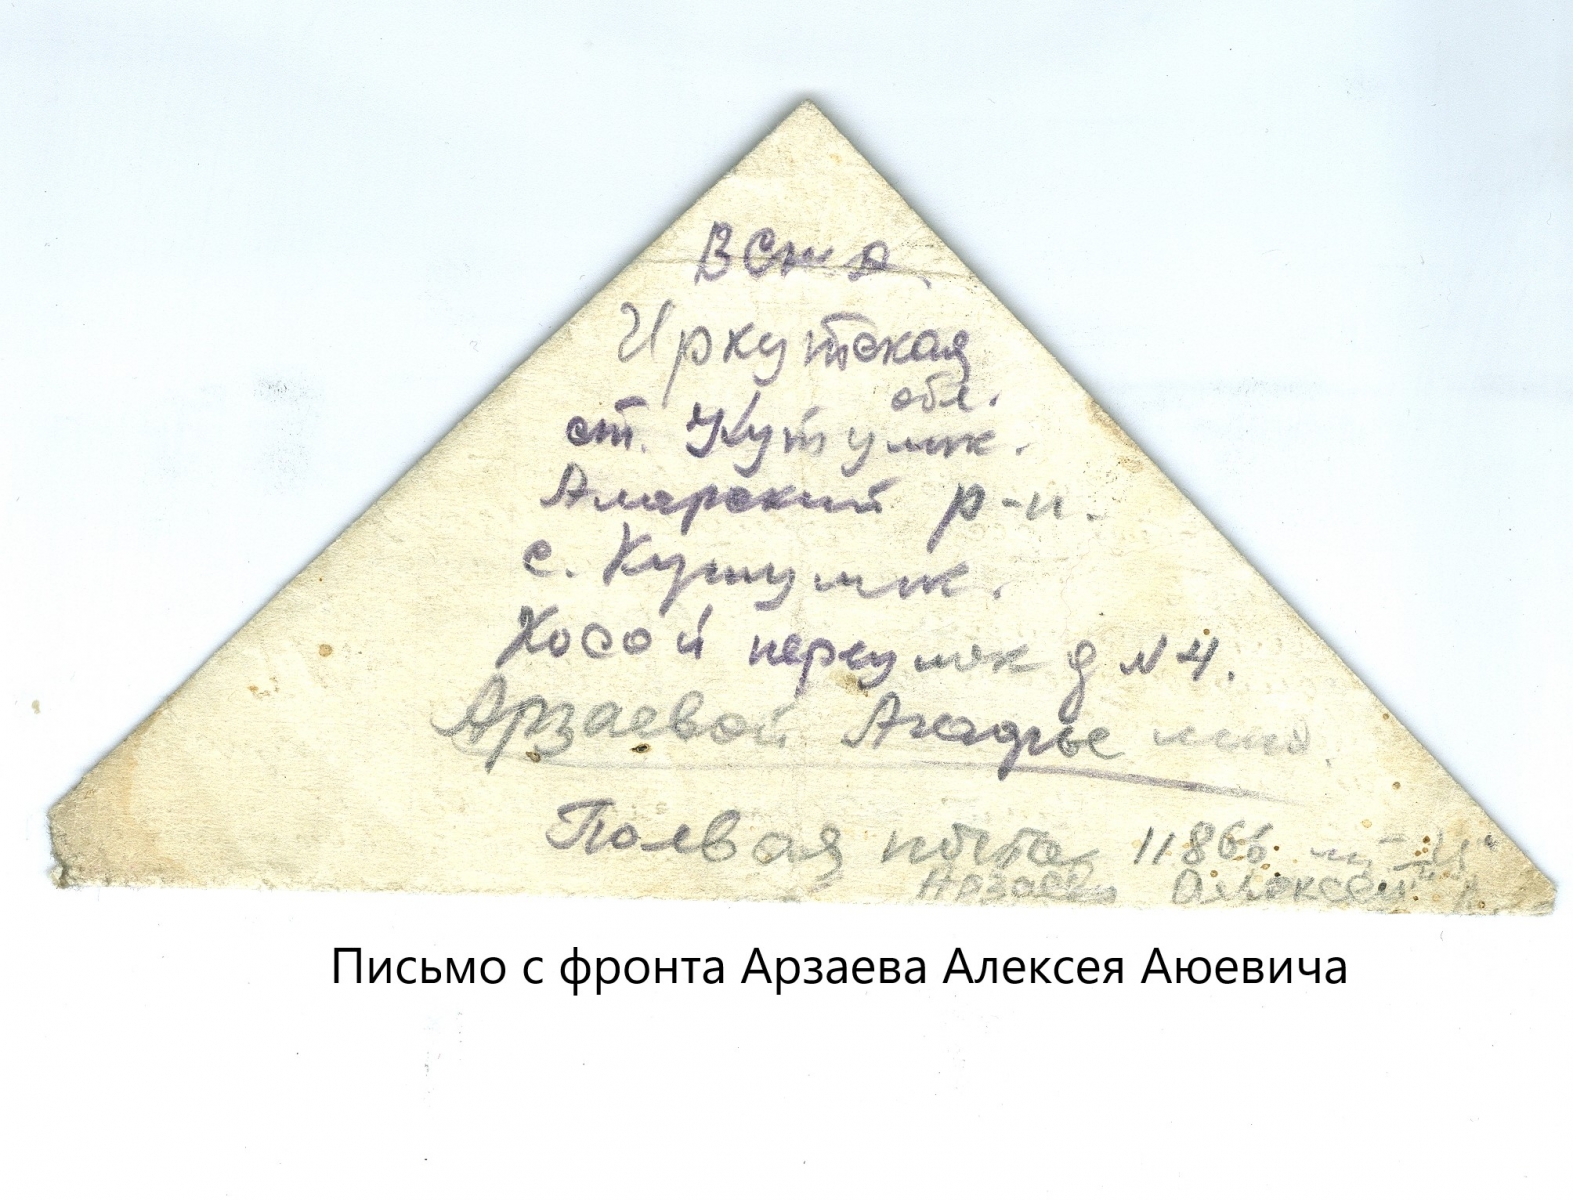 ВСЖД.
Иркутская
обл.
ст. Кутулик.
Аларский р-н.
с. Кутулик.
Косой переулок д N 4.
Арзаевой
Полевая почта 11866
Арзаев Алексей
Письмо с фронта Арзаева Алексея Аюевича